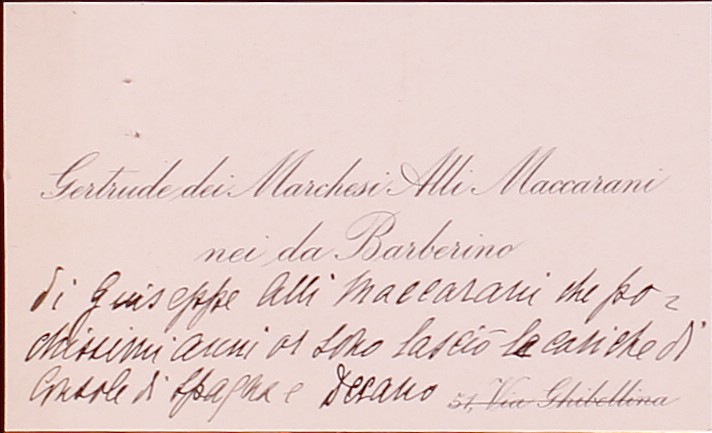 Gertrude dei Marchesi Alli Maccarani
nei da Barberino
di Giuseppe Alli Maccarani che po=
chissimi anni or sono lasciò le cariche di
Console di Spagna e Decano
51, Via Ghibellina